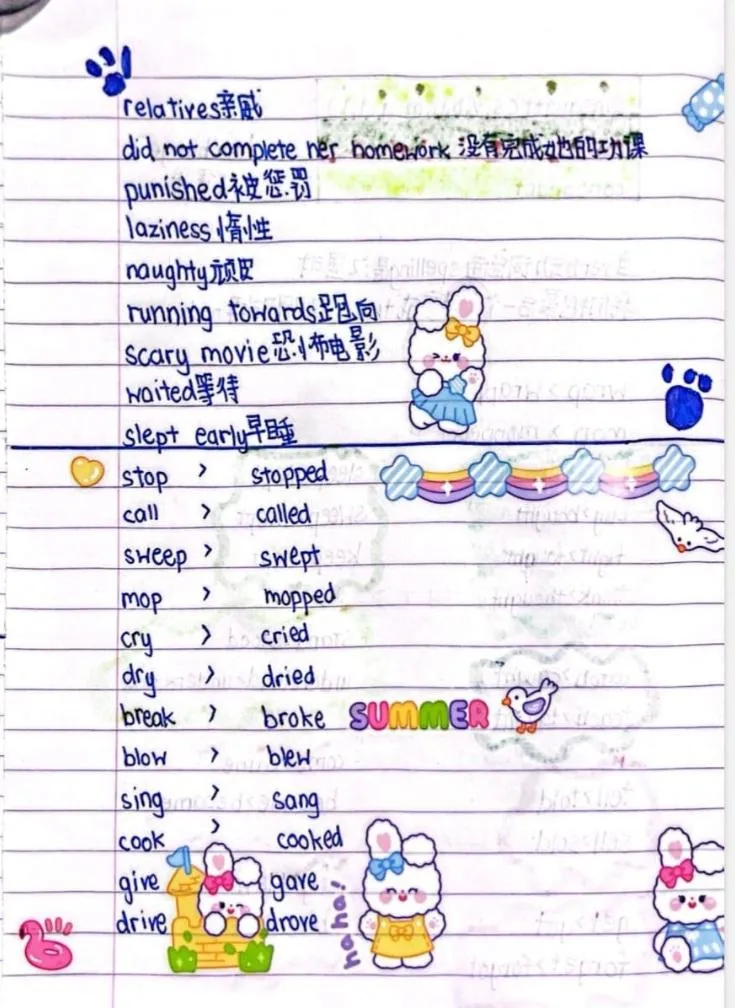 relatives亲戚
did not complete her homework 没有完成她的功课
punished被惩罚
laziness惰性
naughty顽皮
running towards跑向
scary movie恐怖电影
waited等待
slept early早睡
stop > stopped
call > called
sweep > swept
mop > mopped
cry > cried
dry > dried
break > broke SUMMER
blow > blew
sing > sang
cook > cooked
give gave
drive drove
haha!